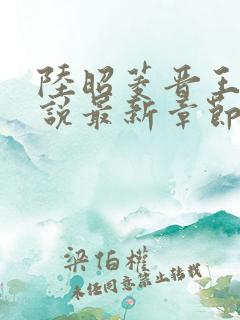 陸昭菱晋王
說最新章節
梁伯權
未任同意禁止轉載